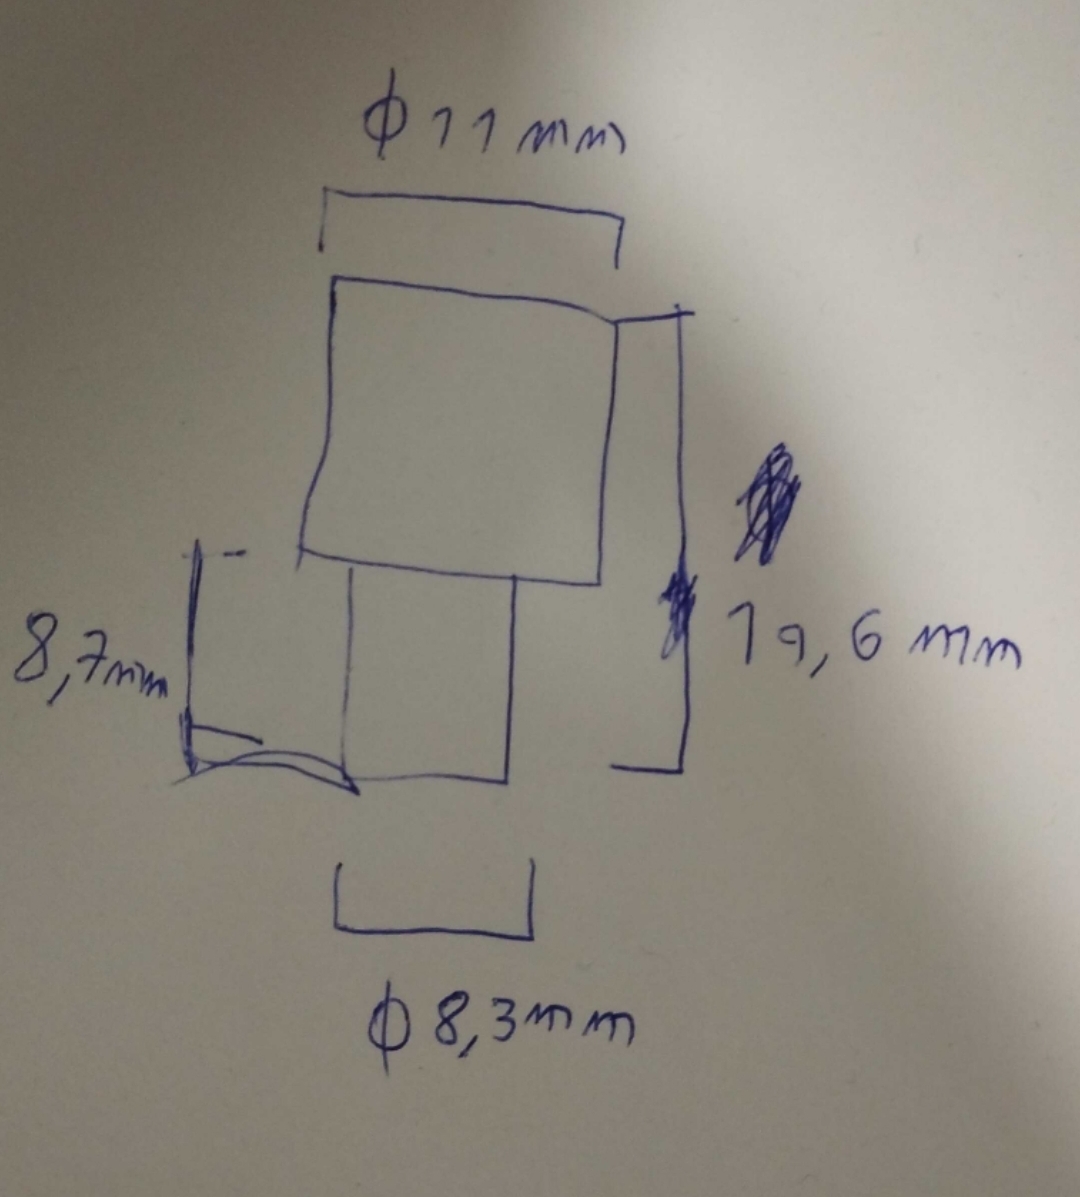 ϕ 11 mm
8,7mm
19,6 mm
ϕ 8,3mm